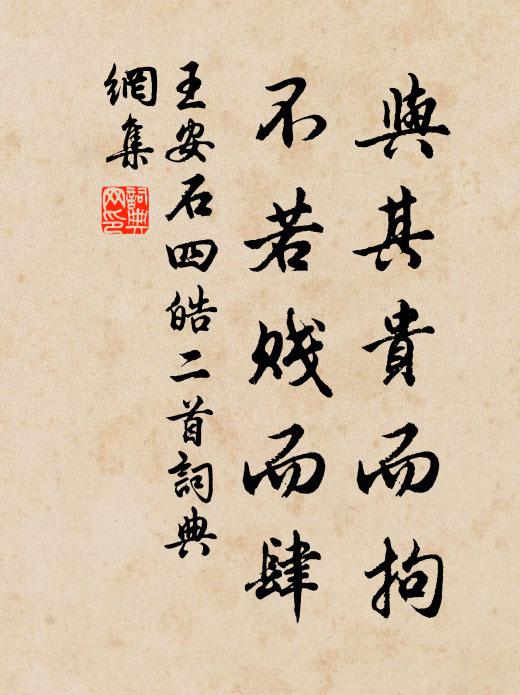 與其貴而拘
不若賤而肆
王安石四皓二首詞典
網集
詞典
网印